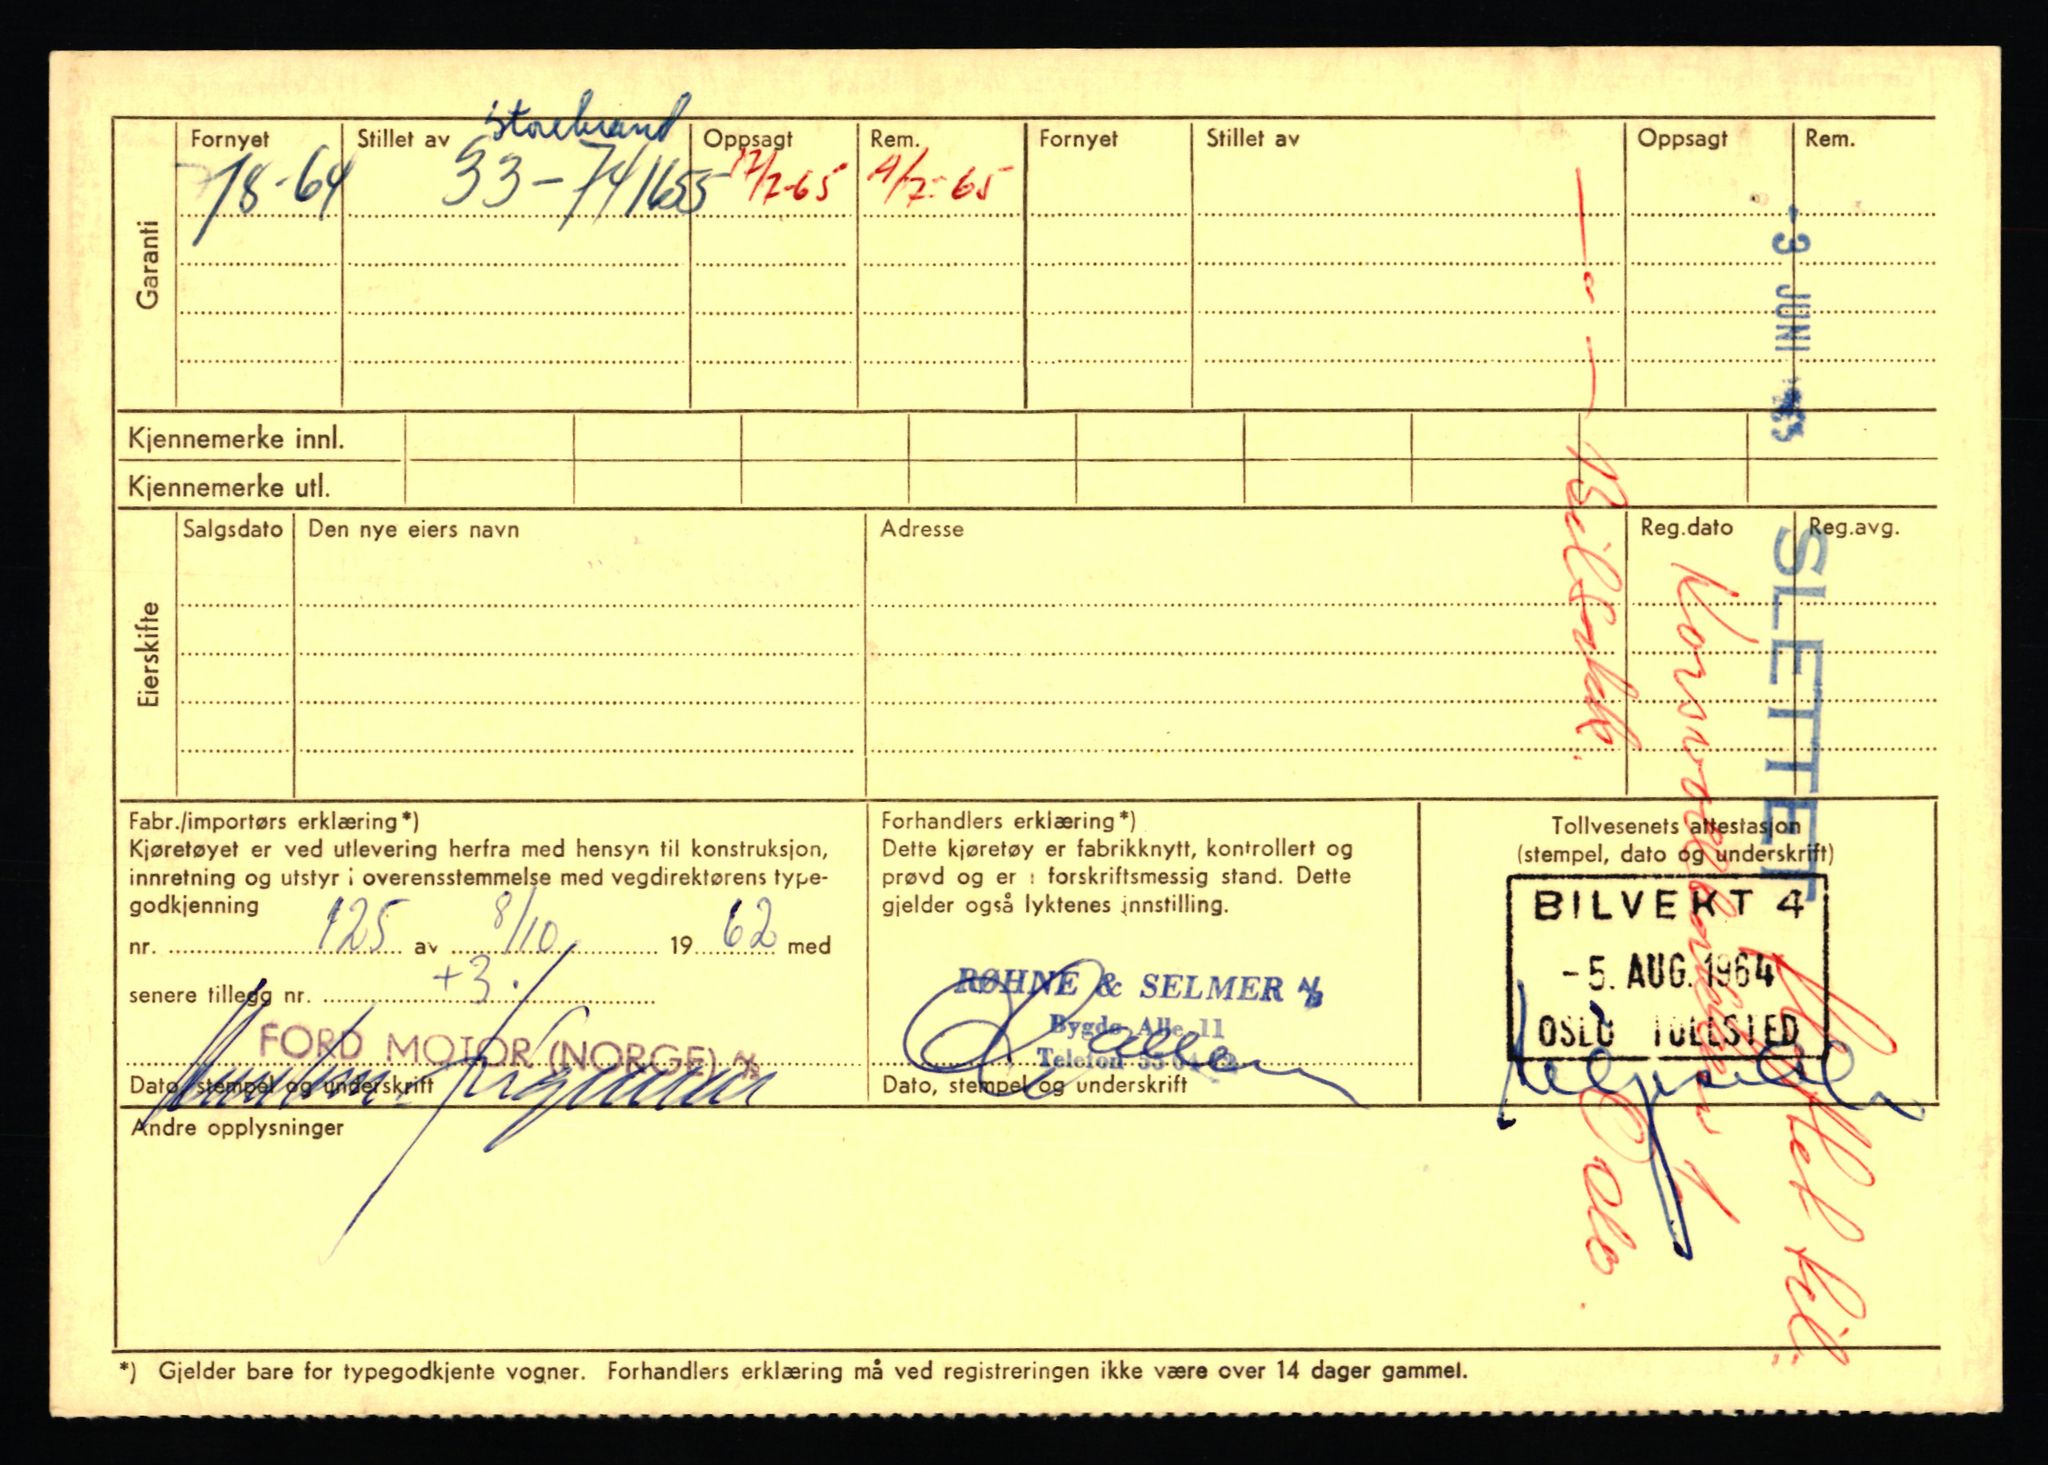 Garanti
Fornyet Stillet av Oppsagt Rem. Fornyet Stillet av Oppsagt Rem.
Storebrand
/8-64 33-741655 17/2-65 4/2-65
Kjennemerke innl.
Kjennemerke utl.
Eierskifte
Salgsdato Den nye eiers navn Adresse Reg.dato Reg.avg.
Fabr./importørs erklæring*)
Kjøretøyet er ved utlevering herfra med hensyn til konstruksjon,
innretning og utstyr i overensstemmelse med vegdirektørens type-
godkjenning
nr. 125 av 8/10 1962 med
senere tillegg nr. +3.
FORD MOTOR (NORGE) A/S
Dato, stempel og underskrift
Forhandlers erklæring*)
Dette kjøretøy er fabrikknytt, kontrollert og
prøvd og er i forskriftsmessig stand. Dette
gjelder også lyktenes innstilling.
RØHNE & SELMER A/S
Bygdø Alle 11
Telefon 55
Dato, stempel og underskrift
Tollvesenets attestasjon
(stempel, dato og underskrift)
BILVEKT 4
-5. AUG. 1964
OSLO TOLLSTED
Andre opplysninger
*) Gjelder bare for typegodkjente vogner. Forhandlers erklæring må ved registreringen ikke være over 14 dager gammel.
-3 JUNI
SLETTET
Slettet til:
Oslo.